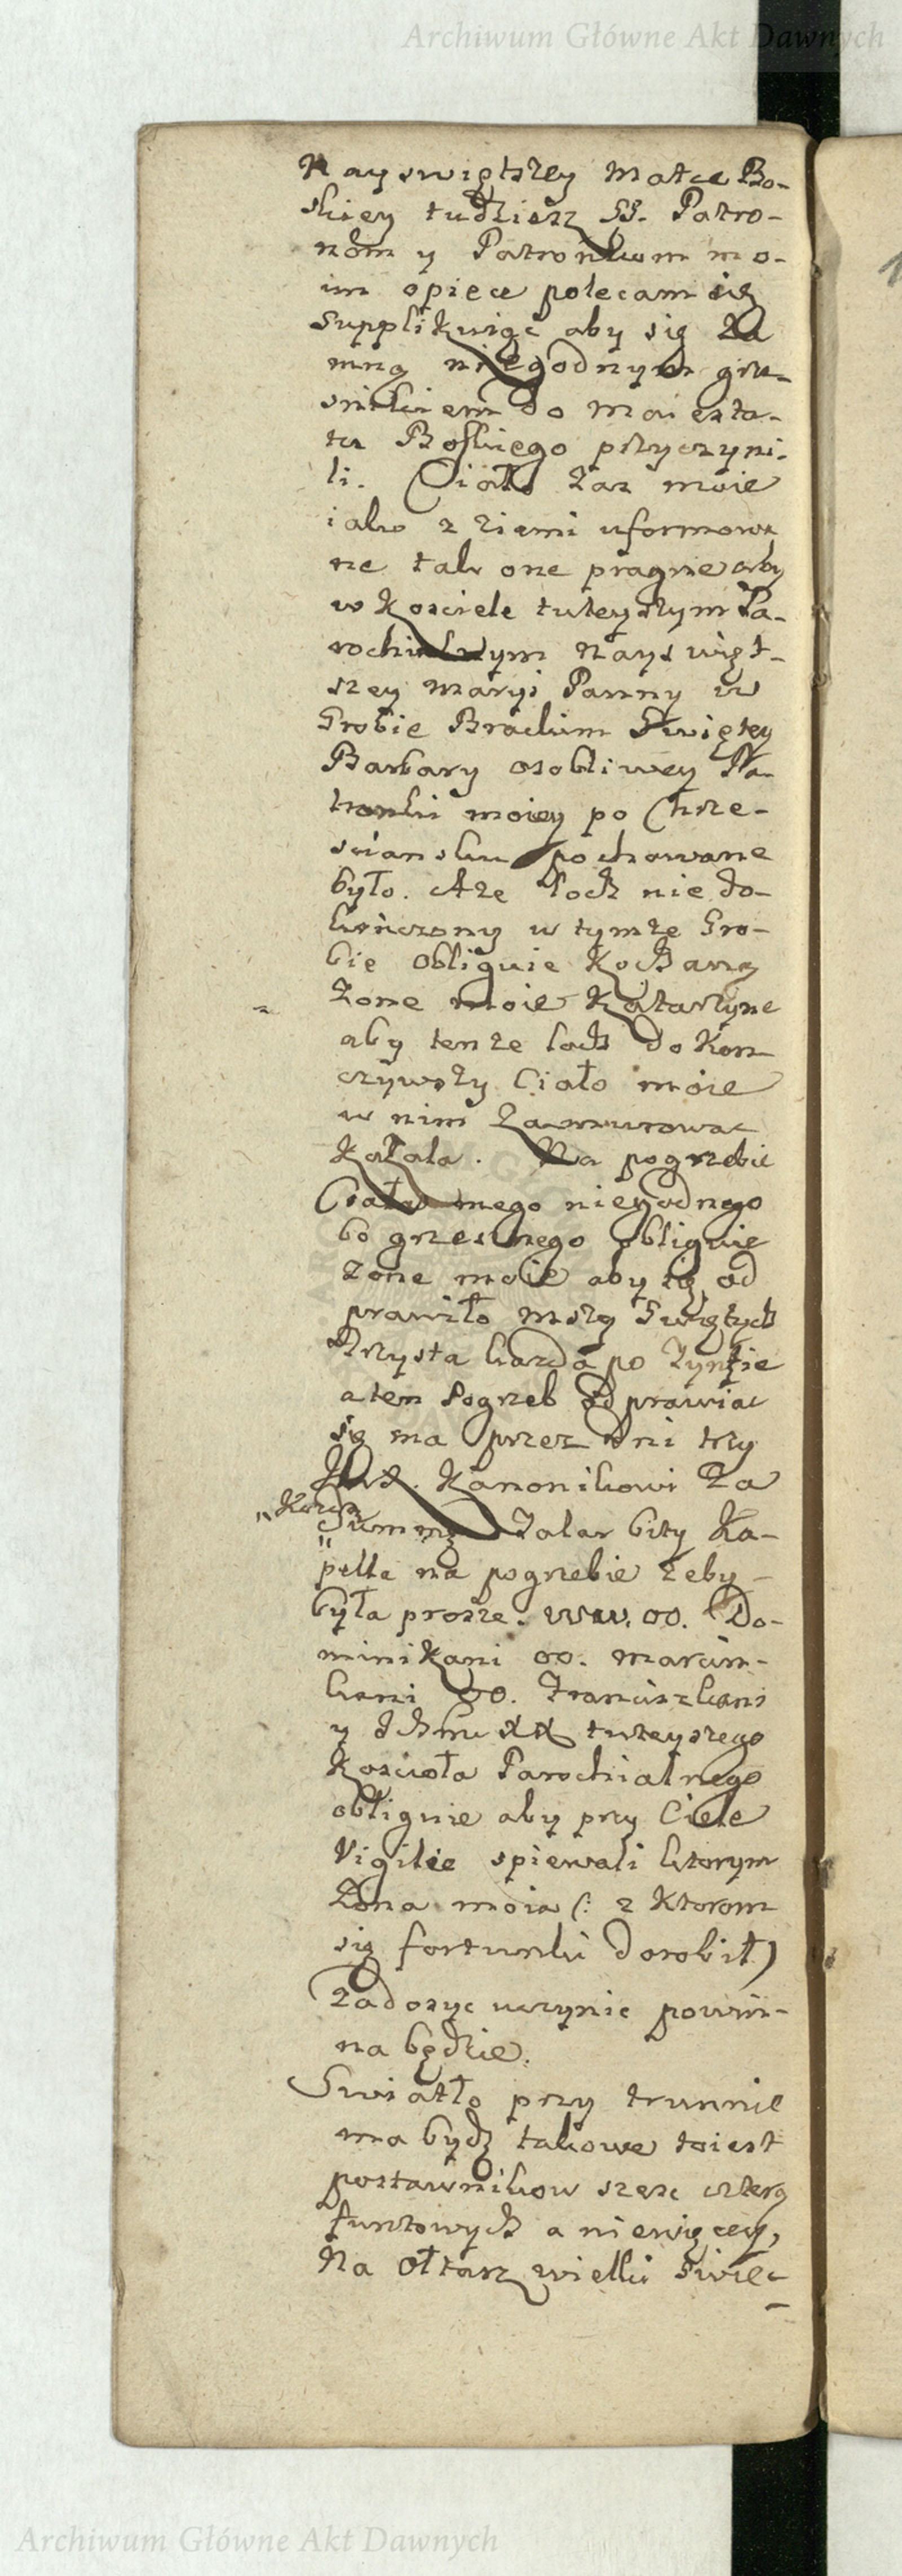 Archiwum Główne Akt Dawnych
Nayswiętszey Matce Bo-
skiey tudziesz SS. Patro-
nom y Patronkom mo-
im opiece polecam się
supplikuiąc aby się za
mną niegodnym grze-
snikiem do Maiesta-
tu Boskiego przyczyni-
li. Ciało zas moie
iako z ziemi uformowa
ne tak one pragne aby
w Kosciele tuteyszym Pa-
rochialnym Nayswięt-
szey Maryi Panny w
Grobie Brackim Swiętey
Barbary osobliwey Pa-
tronki moiey po Chrze-
sciansku pochowane
było. A ze loch nie do-
kończony w tymże Gro-
bie obliguie Kochaną
Zone moie Katarzyne
aby tenze loch dokon-
czywszy Ciało moie
w nim zamurowac
Kazała. Na pogrzebie
Ciała mego niegodnego
bo grzesznego obliguie
zone moie aby się od
prawiło Mszy Swiętych
Trzysta kazda po Tynfie
a ten Pogrzeb odprawiac
się ma przez dni trzy
Kanonikowi Za
Summę Talar bity Ka-
pella na pogrzebie zeby
była prosze. WW. OO. Do-
minikani OO. Marcin-
kani OO. Franciszkani
y XX tuteyszego
Kosciola Parochialnego
obliguie aby przy Ciele
Vigilie spiewali ktorym
Zona moia (: z Ktorom
się fortunki dorobił)
zadosyc uczynic powin-
na będzie.
Swiatło przy trunnie
ma bydz takowe toiest
postawnikow szesc cztery
funtowych a niewięcey,
Na Ołtarz wielki swiec
Archiwum Główne Akt Dawnych